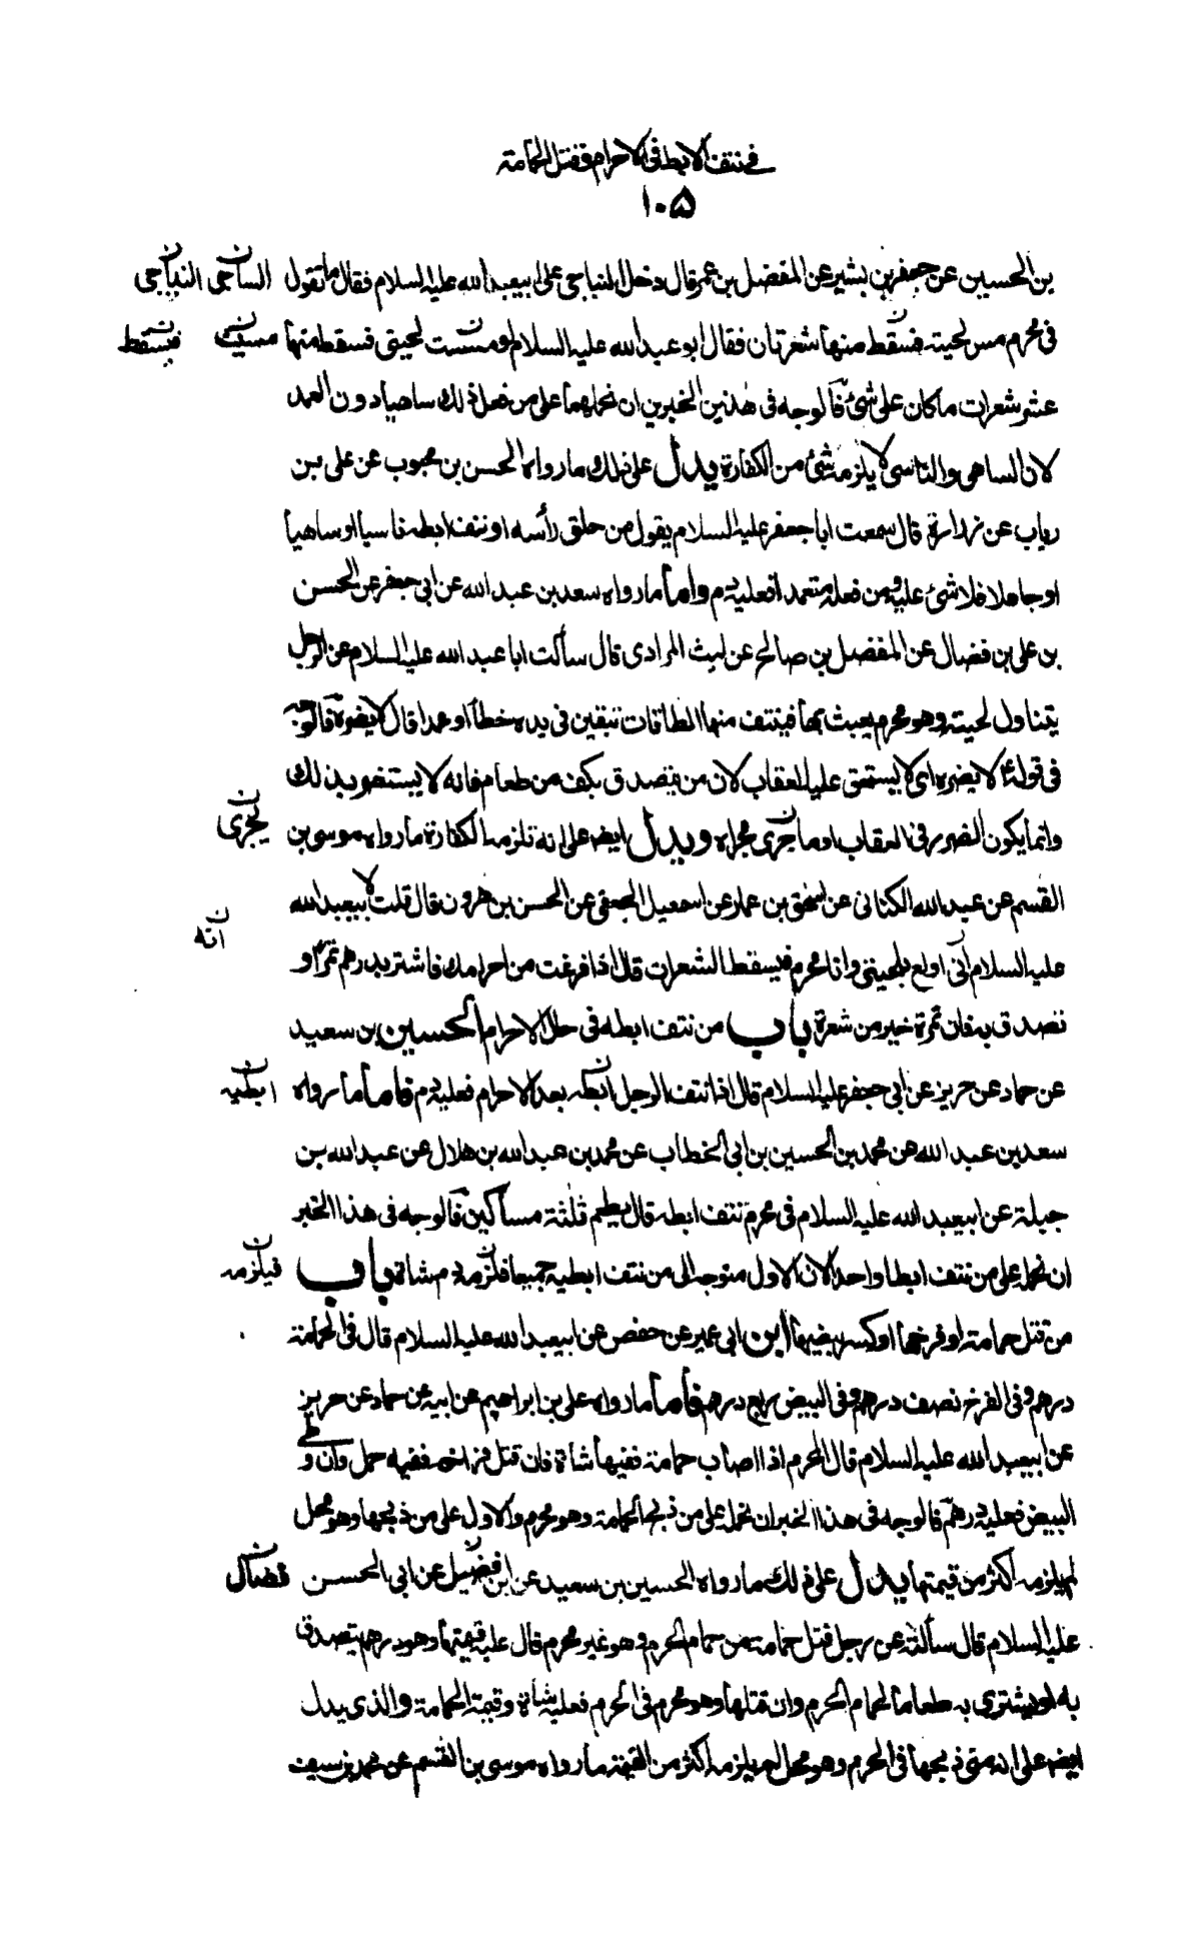 في نتف الابط في الاحرام وفي قتل الحمامة
١٠٥
بن الحسين عن جعفر بن بشير عن المفضل بن عمر قال دخل النباجى على ابيعبد الله عليه السلام فقال ما تقول الساجى النباجى
فى محرم مس لحيته فسقط منها شعرتان فقال ابو عبد الله عليه السلام لو مسست لحيتى فسقط منها مسيت فيسقط
عشر شعرات ما كان على شئ فالوجه فى هذين الخبرين ان نحملهما على من فعل ذلك ساهيا دون العمد
لان الساهى والناسى لا يلزمه شئ من الكفارة يدل على ذلك ما رواه الحسن بن محبوب عن على بن
رياب عن زرارة قال سمعت ابا جعفر عليه السلام يقول من حلق رأسه او نتف ابطه ناسيا او ساهيا
او جاهلا فلا شئ عليه ومن فعله متعمدا فعليه دم واما ما رواه سعد بن عبد الله عن ابى جعفر عن الحسن
بن على بن فضال عن المفضل بن صالح عن ليث المرادى قال سألت ابا عبد الله عليه السلام عن الرجل
يتناول لحيته وهو محرم يعبث بها فينتف منها الطاقات تبقين فى يده خطأ او عمدا قال لا يضره فالوجه
فى قوله ع لا يضره اى لا يستحق عليه العقاب لان من يتصدق بكف من طعام فانه لا يستضر بذلك
وانما يكون الضرر فى العقاب او ما جرى مجراه ويدل ايضه على انه تلزمه الكفارة ما رواه موسى بن يجرى
القسم عن عبد الله الكنانى عن اسحق بن عمار عن اسمعيل الجعفى عن الحسن بن هرون قال قلت لابيعبد الله
انه
عليه السلام انى اولع بلحيتى وانا محرم فيسقط الشعرات قال اذا فرغت من احرامك فاشتر بدرهم تمرا و
تصدق به فان تمرة خير من شعرة باب من نتف ابطه فى حال الاحرام الحسين بن سعيد
عن حماد عن حريز عن ابى جعفر عليه السلام قال اذا نتف الرجل ابطه بعد الاحرام فعليه دم فاما ما رواه ابطيه
سعد بن عبد الله عن محمد بن الحسين بن ابى الخطاب عن محمد بن عبد الله بن هلال عن عبد الله بن
جبلة عن ابيعبد الله عليه السلام فى محرم نتف ابطه قال يطعم ثلثة مساكين فالوجه فى هذا الخبر
ان نحمله على من نتف ابطا واحدا لان الاول متوجه الى من نتف ابطيه جميعا فلزمه دم شاة باب فيلزمه
من قتل حمامة او فرخها او كسر بيضها ابن ابى عمير عن حفص عن ابيعبد الله عليه السلام قال فى الحمامة
درهم وفى الفرخ نصف درهم وفى البيض ربع درهم فاما ما رواه على بن ابراهيم عن ابيه عن حماد عن حريز
عن ابيعبد الله عليه السلام قال المحرم اذا اصاب حمامة ففيها شاة فان قتل فراخه ففيه حمل وان وطى
البيض فعليه درهم فالوجه فى هذا الخبر ان نحمله على من ذبح الحمامة وهو محرم والاول على من ذبحها وهو محل
لم يلزمه اكثر من قيمتها يدل على ذلك ما رواه الحسين بن سعيد عن ابن فضيل عن ابى الحسن فضال
عليه السلام قال سألته عن رجل قتل حمامة من حمام الحرم وهو غير محرم قال عليه قيمتها وهو درهم يتصدق
به او يشترى به طعاما لحمام الحرم وان قتلها وهو محرم فى الحرم فعليه شاة وقيمة الحمامة والذى يدل
ايضه على انه متى ذبحها فى الحرم وهو محل لم يلزمه اكثر من القيمة ما رواه موسى بن القسم عن محمد بن سيف